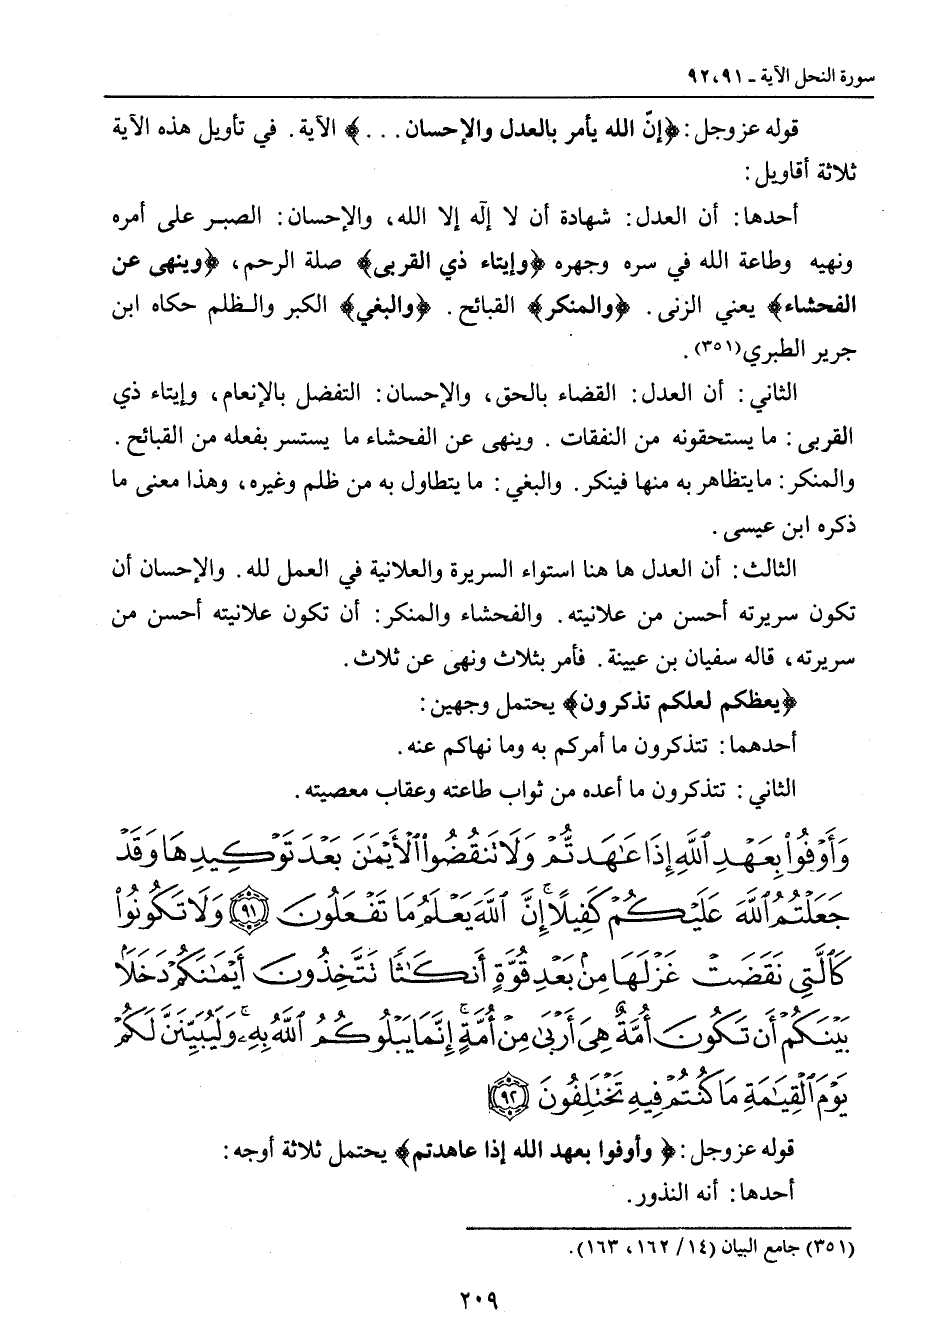 سورة النحل الآية ـ ٩١، ٩٢
قوله عز وجل: ﴿إنّ الله يأمر بالعدل والإحسان . . .﴾ الآية. في تأويل هذه الآية
ثلاثة أقاويل:
أحدها: أن العدل: شهادة أن لا إلٓه إلا الله، والإحسان: الصبر على أمره
ونهيه وطاعة الله في سره وجهره ﴿وإيتاء ذي القربى﴾ صلة الرحم، ﴿وينهى عن
الفحشاء﴾ يعني الزنى. ﴿والمنكر﴾ القبائح. ﴿والبغي﴾ الكبر والظلم حكاه ابن
جرير الطبري(٣٥١).
الثاني: أن العدل: القضاء بالحق، والإحسان: التفضل بالإنعام، وإيتاء ذي
القربى: ما يستحقونه من النفقات. وينهى عن الفحشاء ما يستسر بفعله من القبائح.
والمنكر: ما يتظاهر به منها فينكر. والبغي: ما يتطاول به من ظلم وغيره، وهذا معنى ما
ذكره ابن عيسى.
الثالث: أن العدل ها هنا استواء السريرة والعلانية في العمل لله. والإحسان أن
تكون سريرته أحسن من علانيته. والفحشاء والمنكر: أن تكون علانيته أحسن من
سريرته، قاله سفيان بن عيينة. فأمر بثلاث ونهى عن ثلاث.
﴿يعظكم لعلكم تذكرون﴾ يحتمل وجهين:
أحدهما: تتذكرون ما أمركم به وما نهاكم عنه.
الثاني: تتذكرون ما أعده من ثواب طاعته وعقاب معصيته.
وَأَوْفُوا۟ بِعَهْدِ ٱللَّهِ إِذَا عَٰهَدتُّمْ وَلَا تَنقُضُوا۟ ٱلْأَيْمَٰنَ بَعْدَ تَوْكِيدِهَا وَقَدْ
جَعَلْتُمُ ٱللَّهَ عَلَيْكُمْ كَفِيلًا ۚ إِنَّ ٱللَّهَ يَعْلَمُ مَا تَفْعَلُونَ ﴿٩١﴾ وَلَا تَكُونُوا۟
كَٱلَّتِى نَقَضَتْ غَزْلَهَا مِنۢ بَعْدِ قُوَّةٍ أَنكَٰثًا تَتَّخِذُونَ أَيْمَٰنَكُمْ دَخَلًۢا
بَيْنَكُمْ أَن تَكُونَ أُمَّةٌ هِىَ أَرْبَىٰ مِنْ أُمَّةٍ ۚ إِنَّمَا يَبْلُوكُمُ ٱللَّهُ بِهِۦ ۚ وَلَيُبَيِّنَنَّ لَكُمْ
يَوْمَ ٱلْقِيَٰمَةِ مَا كُنتُمْ فِيهِ تَخْتَلِفُونَ ﴿٩٢﴾
قوله عز وجل: ﴿وأوفوا بعهد الله إذا عاهدتم﴾ يحتمل ثلاثة أوجه:
أحدها: أنه النذور.
(٣٥١) جامع البيان (١٤/ ١٦٢، ١٦٣).
٢٠٩